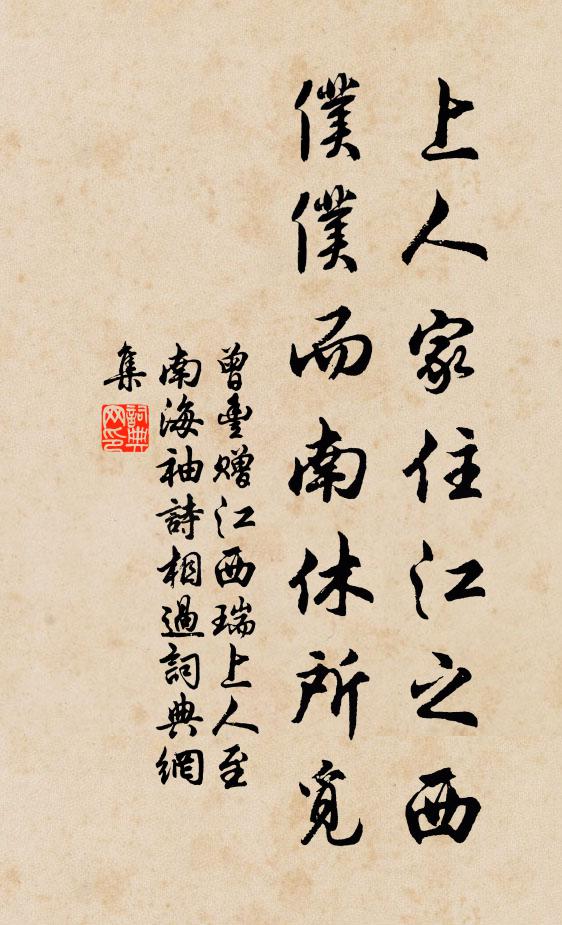 上人家住江之西
僕僕而南休所覓
曾豊贈江西瑞上人至
南海袖詩相過詞典網
集
詞典
网印